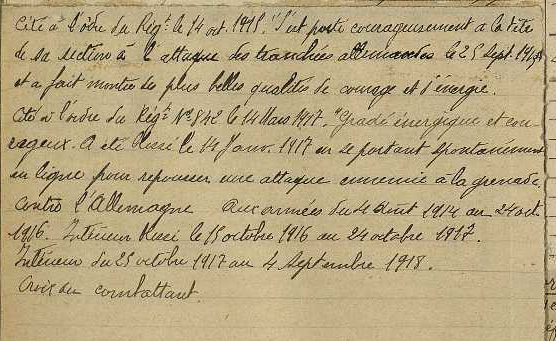 Cité à l'ordre du Régt. le 14 oct. 1915. "S'est porté courageusement a la tête
de sa section à l'attaque des tranchées allemandes le 25 Sept. 1915
et a fait montre des plus belles qualités de courage et d'énergie.
Cité à l'ordre du Régt. N° 542 le 14 Mars 1917. "Gradé énergique et cou-
rageux. A été blessé le 14 Janv. 1917 en se portant spontanément
en ligne pour repousser une attaque ennemie à la grenade.
Contre l'Allemagne Aux armées du 4 Août 1914 au 24 oct.
1916. Intérieur blessé le 15 octobre 1916 au 24 octobre 1917.
Intérieur du 25 octobre 1917 au 4 Septembre 1918.
Croix du combattant